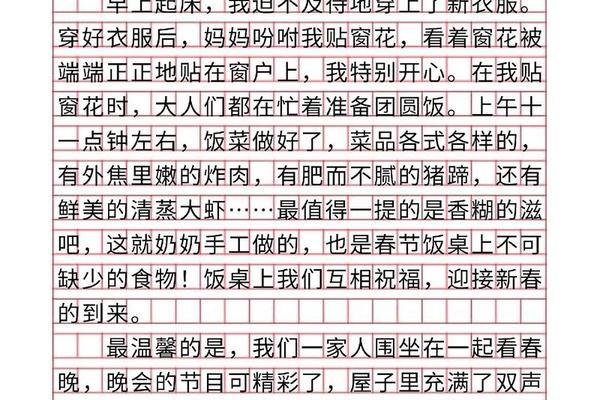 早上起床，我迫不及待地穿上了新衣服。
穿好衣服后，妈妈吩咐我贴窗花，看着窗花被
端端正正地贴在窗户上，我特别开心。在我贴
窗花时，大人们都在忙着准备团圆饭。上午十
一点钟左右，饭菜做好了，菜品各式各样的，
有外焦里嫩的炸肉，有肥而不腻的猪蹄，还有
鲜美的清蒸大虾……最值得一提的是香糊的滋
吧，这就奶奶手工做的，也是春节饭桌上不可
缺少的食物！饭桌上我们互相祝福，迎接新春
的到来。
最温馨的是，我们一家人围坐在一起看春
晚，晚会的节目可精彩了，屋子里充满了双声